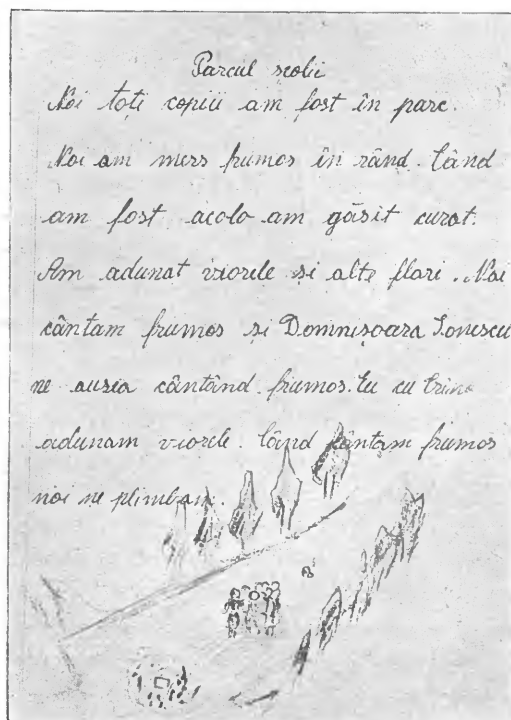 Parcul scolii
Noi toți copiii am fost în parc.
Noi am mers frumos în rând. Când
am fost acolo am găsit curat.
Am adunat viorele și alte flori. Noi
cântam frumos și Domnișoara Ionescu
ne auzia cântând frumos. Eu cu
adunam viorele. Când cântam frumos
noi ne plimbam.